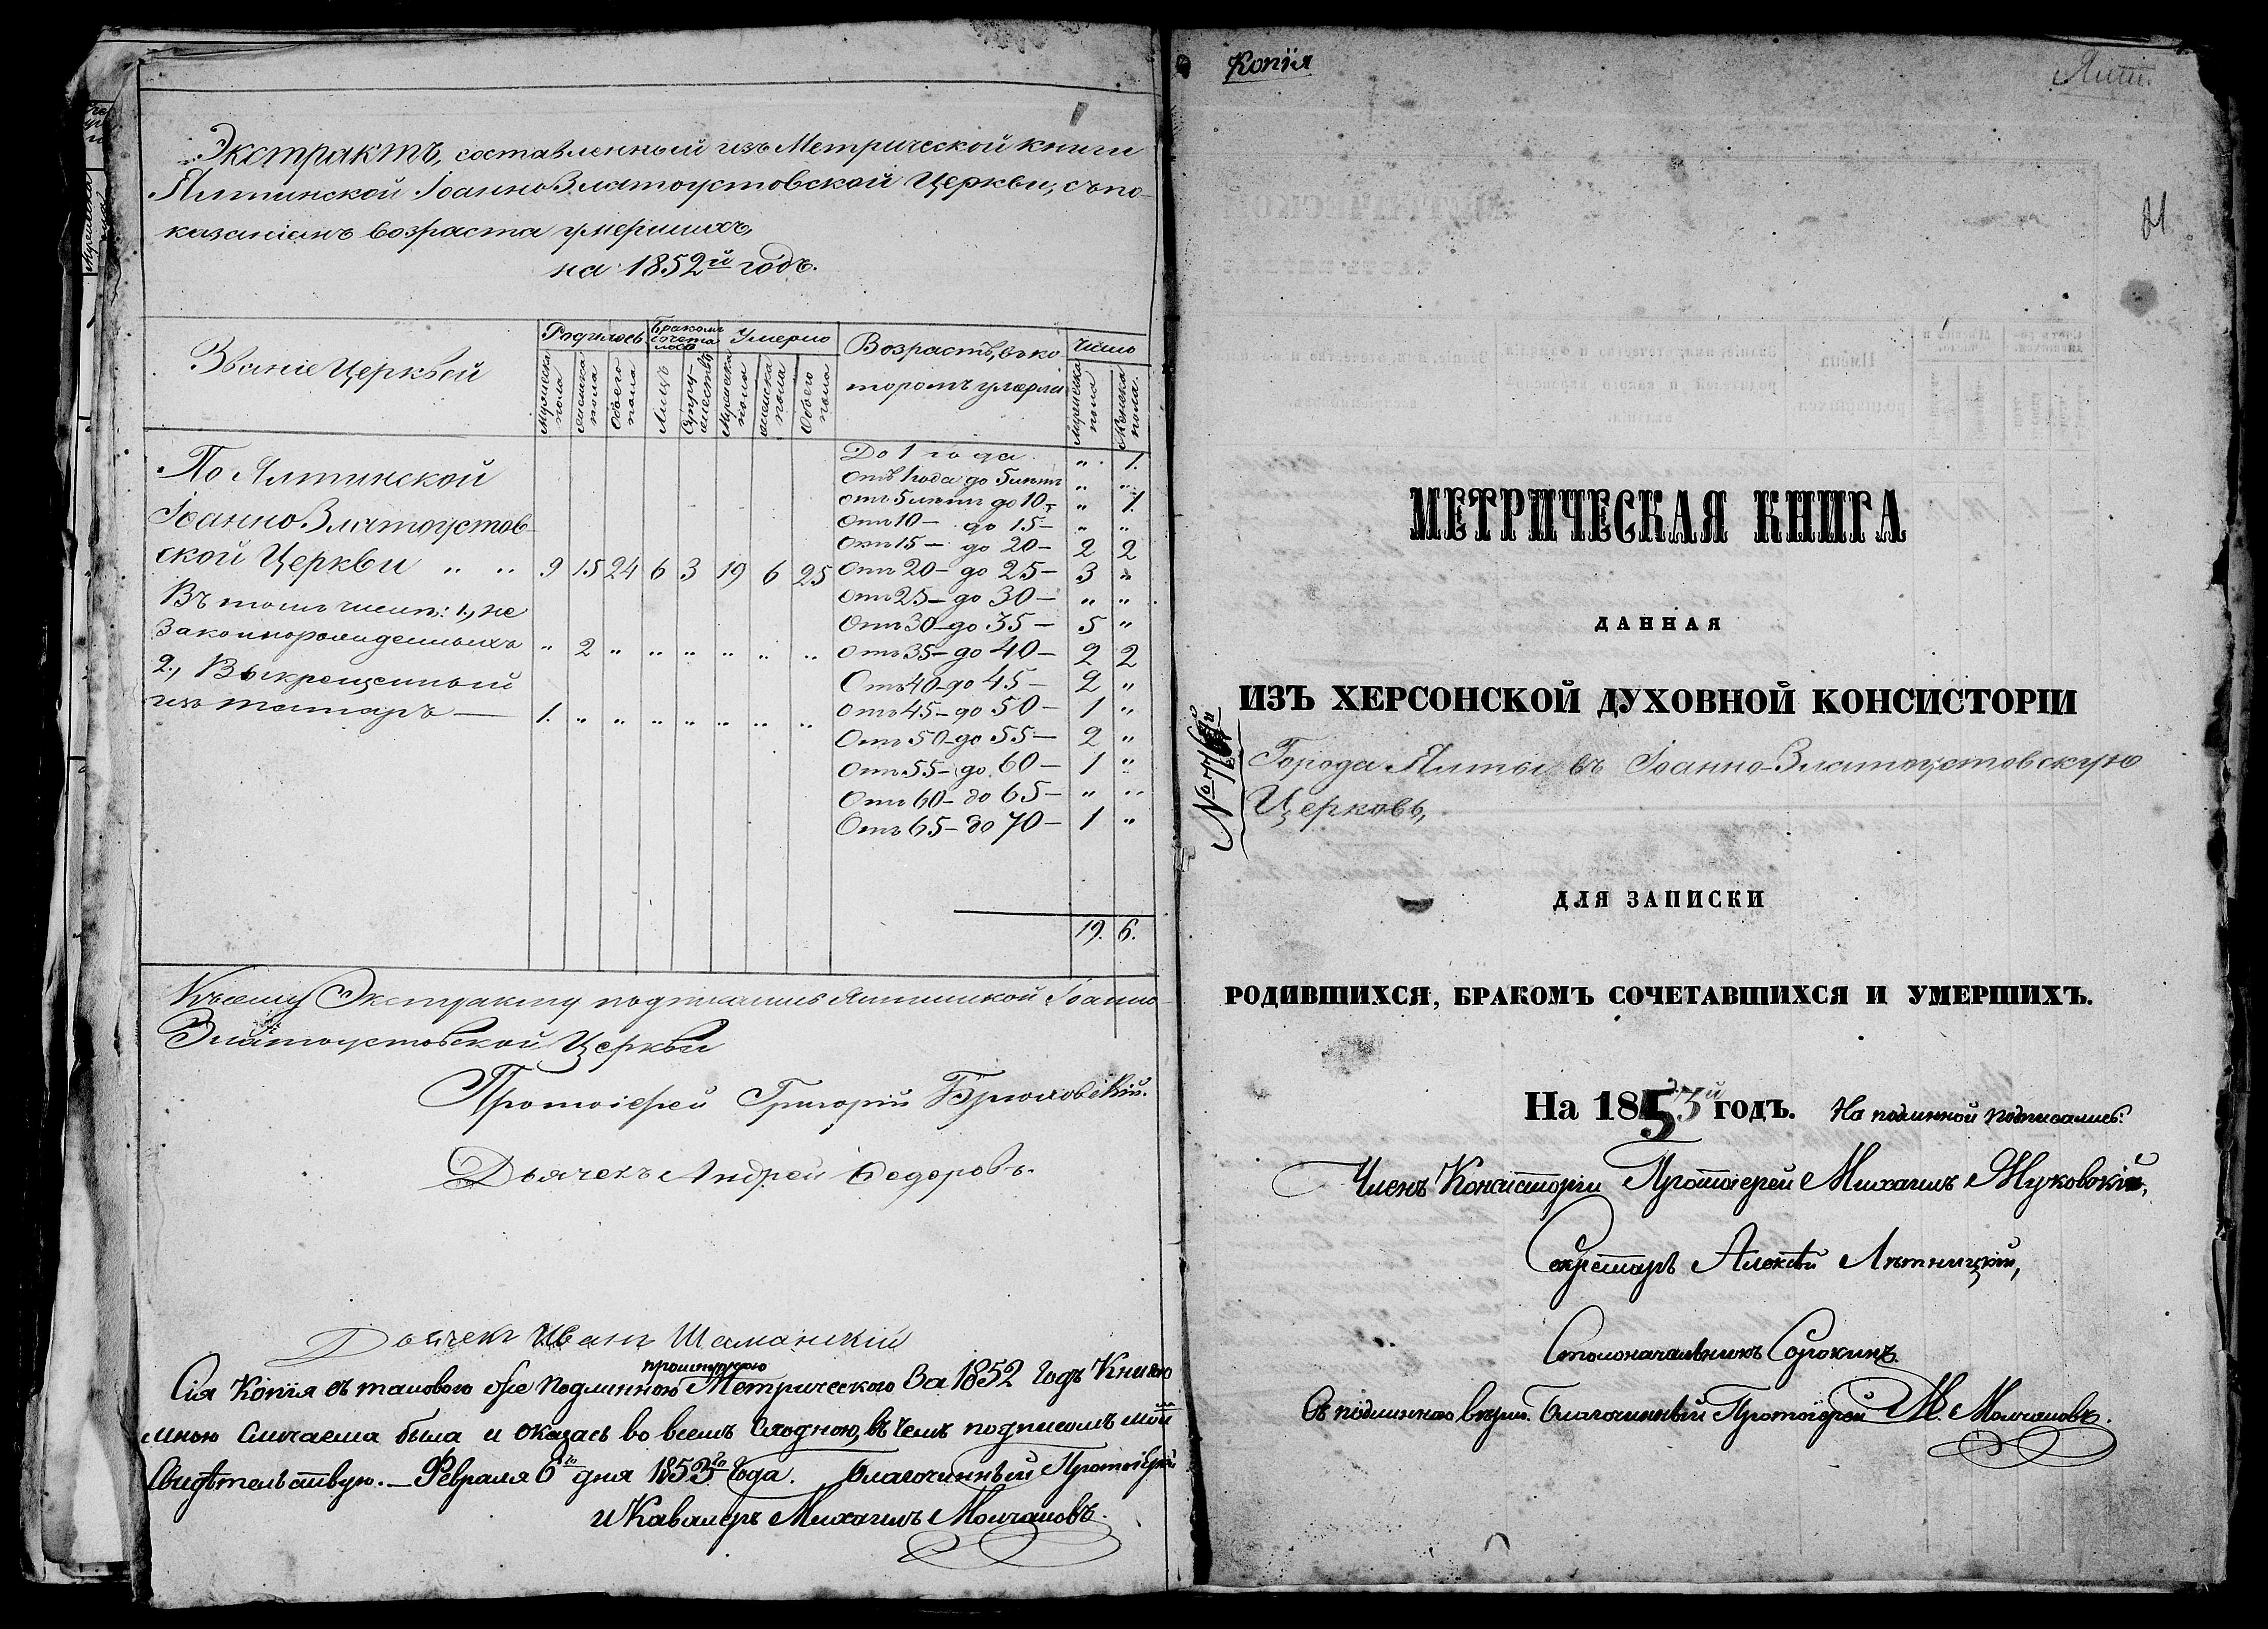 Экстрактъ, составленный изъ Метрической книги
Ялтинской Іоанно Златоустовской Церкви, съ по-
казаніемъ возраста умершихъ,
на 1852й годъ.
Званіе Церквей
Родилось
Бракомъ сочета лось
Умерло
Возрастъ, въ ко
торомъ умерли
Число
Мужеска пола
Женска пола
Обоего пола
Лицъ
Супру-жествъ
Мужеска пола
Женска пола
Обоего пола
Мужеска пола
Женска пола.
По Ялтинской
Іоанно Златоустов-
ской Церкви „ „ 9 15 24 6 3 19 6 25
Въ томъ числѣ: 1., не
законнорожденныхъ „ 2 „ „ „ „ „ „
2., Выкрещенный
изъ татаръ — 1. „ „ „ „ „ „ „
До 1 года „ 1.
Отъ 1 года до 5 лѣтъ „ „
отъ 5 лѣтъ до 10 - „ 1.
Отъ 10 — до 15 — „ „
Отъ 15 — до 20 — 2 2
Отъ 20 — до 25 — 3 „
Отъ 25 — до 30 — „ „
Отъ 30 — до 35 — 5 „
Отъ 35 — до 40 — 2 2
Отъ 40 — до 45 — 2 „
Отъ 45 — до 50 — 1 „
Отъ 50 — до 55 — 2 „
Отъ 55 — до 60 — 1 „
Отъ 60 — до 65 — „ „
Отъ 65 — до 70 — 1 „
19. 6.
Къ сему Экстракту подписались Ялтинской Іоанно-
Златоустовской Церкви
Протоіерей Григорій
Дьячекъ Андрей Ѳедоровъ.
Дьячекъ Иванъ Шаманскій
Сія Копія съ таковою же подлинною прошнурною Метрическою За 1852 Годъ Книгою
мною Сличаема была и оказась во всемъ Сходною, въ чемъ подписомъ моимъ
Свидѣтельствую. — Февраля 6го дня 1853го Года. Благочинный Протоіерей
и Кавалеръ Михаилъ Молчановъ.
Копія
Ялт.
МЕТРИЧЕСКАЯ КНИГА
ДАННАЯ
ИЗЪ ХЕРСОНСКОЙ ДУХОВНОЙ КОНСИСТОРІИ
Города Ялты въ Іоанно-Златоустовскую
Церковь,
ДЛЯ ЗАПИСКИ
РОДИВШИХСЯ, БРАКОМЪ СОЧЕТАВШИХСЯ И УМЕРШИХЪ.
На 1853й годъ. На подлинной подписались:
Членъ Консисторіи Протоіерей Михаилъ Жуковскій,
Секретарь Алексѣй Лѣтницкій,
Столоначальникъ Сорокинъ.
Съ подлинною вѣрно. Благочинный Протоіерей М. Молчановъ.